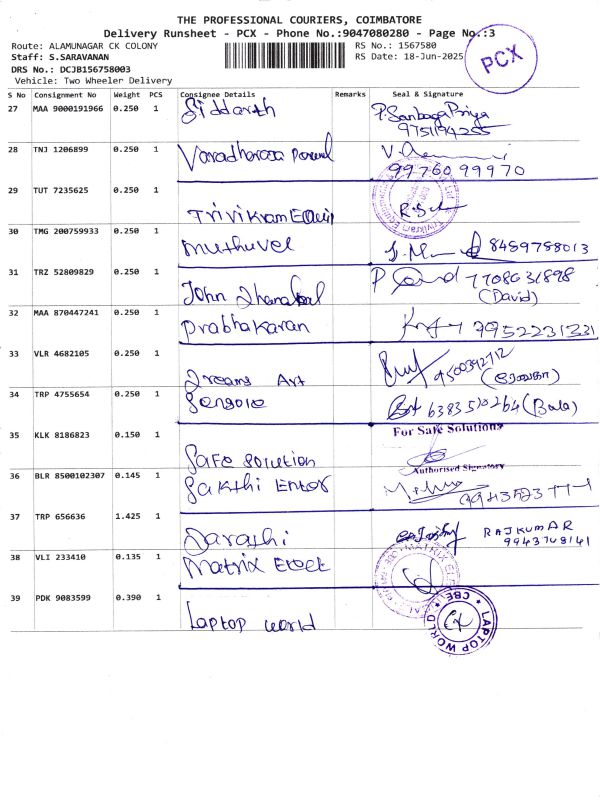 THE PROFESSIONAL COURIERS, COIMBATORE
Delivery Runsheet - PCX - Phone No.:9047080280 - Page No.:3
Route: ALAMUNAGAR CK COLONY RS No.: 1567580
Staff: S.SARAVANAN RS Date: 18-Jun-2025
DRS No.: DCJB156758003
Vehicle: Two Wheeler Delivery
PCX
S No Consignment No Weight PCS Consignee Details Remarks Seal & Signature
27 MAA 9000191966 0.250 1 Siddarth P. Sanbaga Priya
9751194255
28 TNJ 1206899 0.250 1 Varadharaja
9976099970
29 TUT 7235625 0.250 1 Trivikram Equip
30 TMG 200759933 0.250 1 Muthuvel 8489788013
31 TRZ 52809829 0.250 1 John 7708631898
(David)
32 MAA 870447241 0.250 1 Prabhakaran 79952231331
33 VLR 4682105 0.250 1 Dreams Art 9500392712
34 TRP 4755654 0.250 1 6383510264 (Bala)
35 KLK 8186823 0.150 1 Safe Solution For Safe Solutions
Authorised Signatory
36 BLR 8500102307 0.145 1 Sakthi Enter
37 TRP 656636 1.425 1 RAJKUMAR
9943748141
38 VLI 233410 0.135 1 Matrix
39 PDK 9083599 0.390 1 Laptop World LAPTOP WORLD CBE